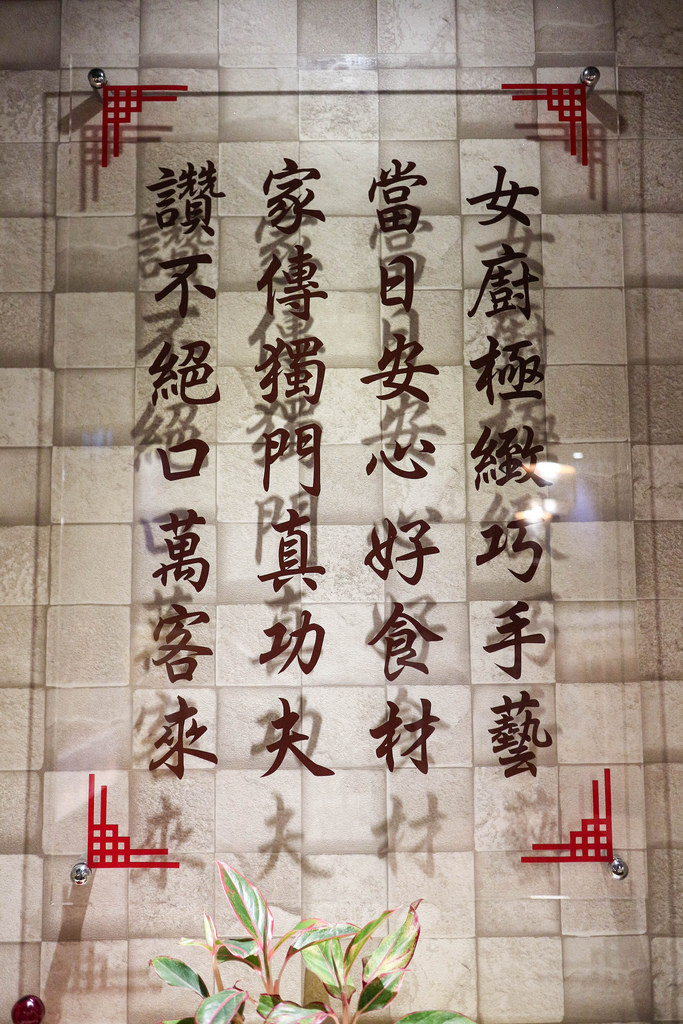 女廚極緻巧手藝
當日安心好食材
家傳獨門真功夫
讚不絕口萬客來